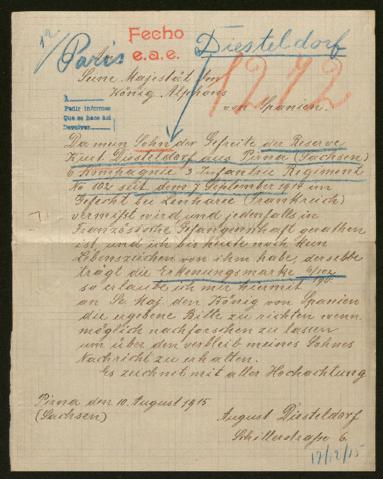 12/
Paris
Fecho
e.a.e.
Diesteldorf
1272
An
Seine Majestät den
König Alphons
von Spanien.
A
Pedir informes
Que se hace así
Devolver
Da mein Sohn der Gefreite der Reserve
Kurt Diesteldorf aus Pirna (Sachsen)
6 Kompagnie 3 Infantrie Regiment
No 102 seit dem 7 September 1914 im
Gefecht bei Lenharee (Frankreich)
vermißt wird und jedenfalls in
Französische Gefangenschaft gerathen
ist, und ich bis heute noch kein
Lebenszeichen von ihm habe, derselbe
trägt die Erkenungsmarke 6/102
so erlaube ich mir hiermit
an Se Maj. den König von Spanien
die ergebene Bitte zu richten wenn
möglich nachforschen zu lassen
um über den verbleib meines Sohnes
Nachricht zu erhalten.
Es zeichnet mit aller Hochachtung
Pirna den 10. August 1915
(Sachsen)
August Diesteldorf
Schillerstraße 6
17/12/15